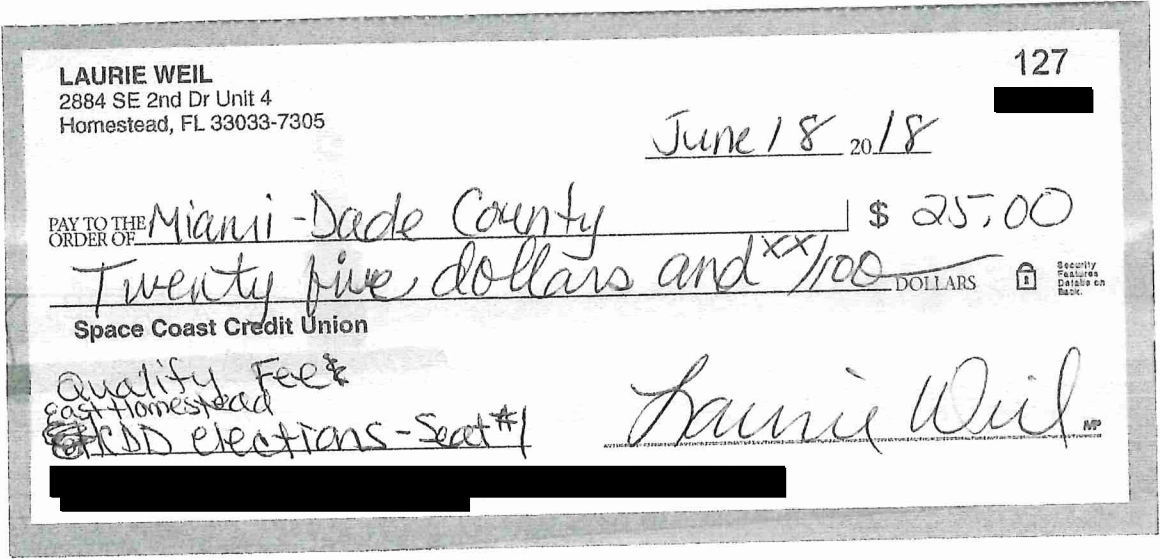 LAURIE WEIL
2884 SE 2nd Dr Unit 4
Homestead, FL 33033-7305
127
June 18 2018
PAY TO THE ORDER OF Miami-Dade County $ 25.00
Twenty five dollars and xx/100 DOLLARS
Security Features Details on Back.
Space Coast Credit Union
Qualify Fee
East Homestead
CDD elections - Seat #1
Laurie Weil MP